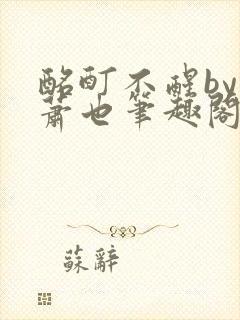 酩酊不醒by
萧也筆趣閣
蘇辭